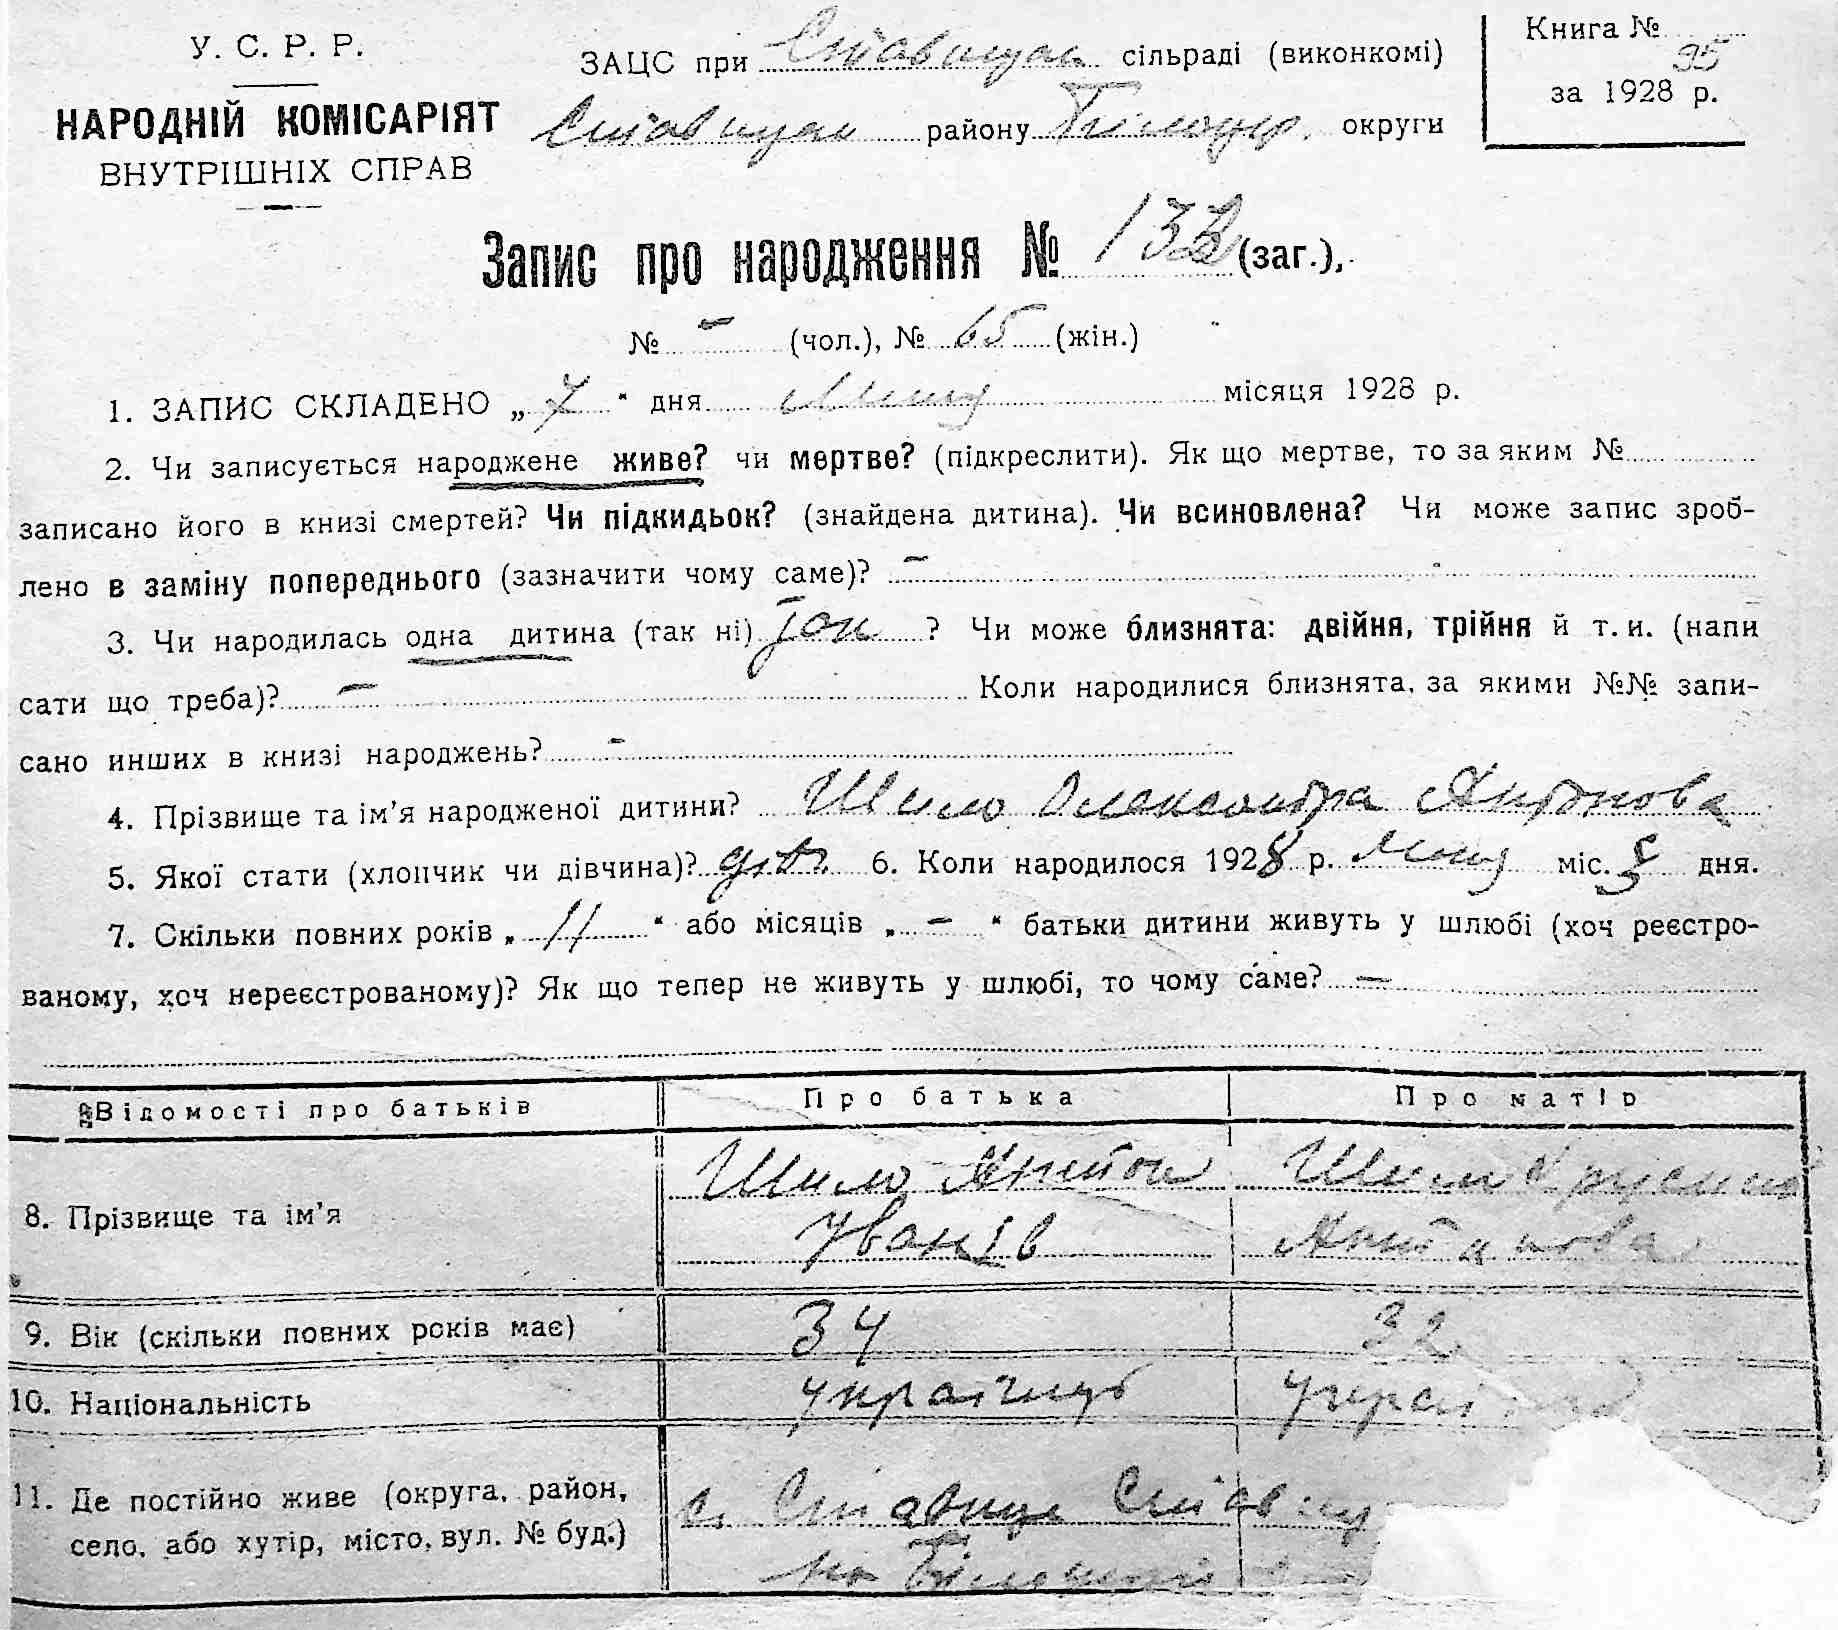 У. С. Р. Р.
НАРОДНІЙ КОМІСАРІЯТ
ВНУТРІШНІХ СПРАВ
ЗАЦС при Ставищан сільраді (виконкомі)
Ставищан району Білоцер. округи
Книга №
за 1928 р.
95
Запис про народження № 132 (заг.),
№ – (чол.), № 65 (жін.)
1. ЗАПИС СКЛАДЕНО „ 7 “ дня місяця 1928 р.
2. Чи записується народжене живе? чи мертве? (підкреслити). Як що мертве, то за яким №
записано його в книзі смертей? Чи підкидьок? (знайдена дитина). Чи всиновлена? Чи може запис зроб-
лено в заміну попереднього (зазначити чому саме)? –
3. Чи народилась одна дитина (так ні) ? Чи може близнята: двійня, трійня й т. и. (напи
сати що треба)? – Коли народилися близнята, за якими №№ запи-
сано инших в книзі народжень? –
4. Прізвище та ім’я народженої дитини? Шило Олександра Антонова
5. Якої стати (хлопчик чи дівчина)? дівч. 6. Коли народилося 1928 р. міс. 5 дня.
7. Скільки повних років „ 11 “ або місяців „ – “ батьки дитини живуть у шлюбі (хоч реєстро-
ваному, хоч нереєстрованому)? Як що тепер не живуть у шлюбі, то чому саме? –
Відомості про батьків Про батька Про матір
8. Прізвище та ім’я Шило Антон Шило
Іванів
9. Вік (скільки повних років має) 34 32
10. Національність українець
11. Де постійно живе (округа, район, с. Ставище
село, або хутір, місто, вул. № буд.)